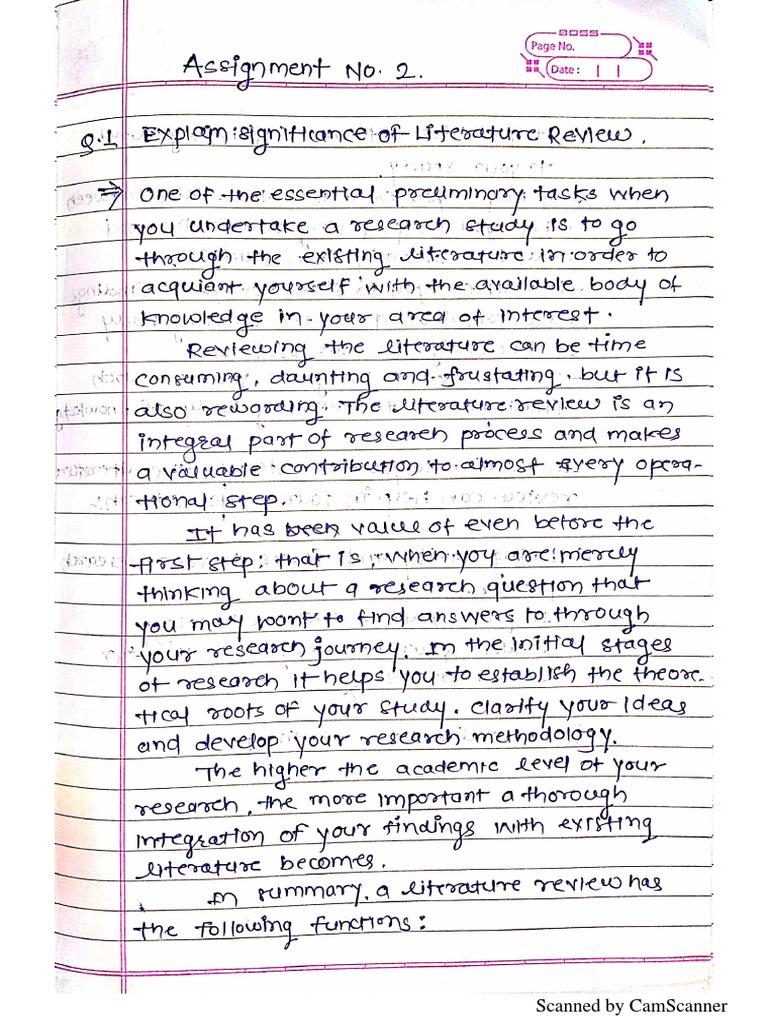 Assignment No. 2.
BOSS
Page No.
Date : | |
Q.1 Explain significance of Literature Review.
⇒ One of the essential preliminory tasks when
you undertake a research study is to go
through the existing literature in order to
acquiant yourself with the available body of
knowledge in your area of interest.
Reviewing the literature can be time
consuming, daunting and frustating. but it is
also rewarding. The literature review is an
integral part of research process and makes
a valuable contribution to almost every opera-
tional step.
It has value of even before the
first step; that is, when you are merely
thinking about a research question that
you may want to find answers to through
your research journey. In the initial stages
of research it helps you to establish the theore-
tical roots of your study. clarify your ideas
and develop your research methodology.
The higher the academic level of your
research, the more important a thorough
integration of your findings with existing
literature becomes.
In summary, a literature review has
the following functions:
Scanned by CamScanner